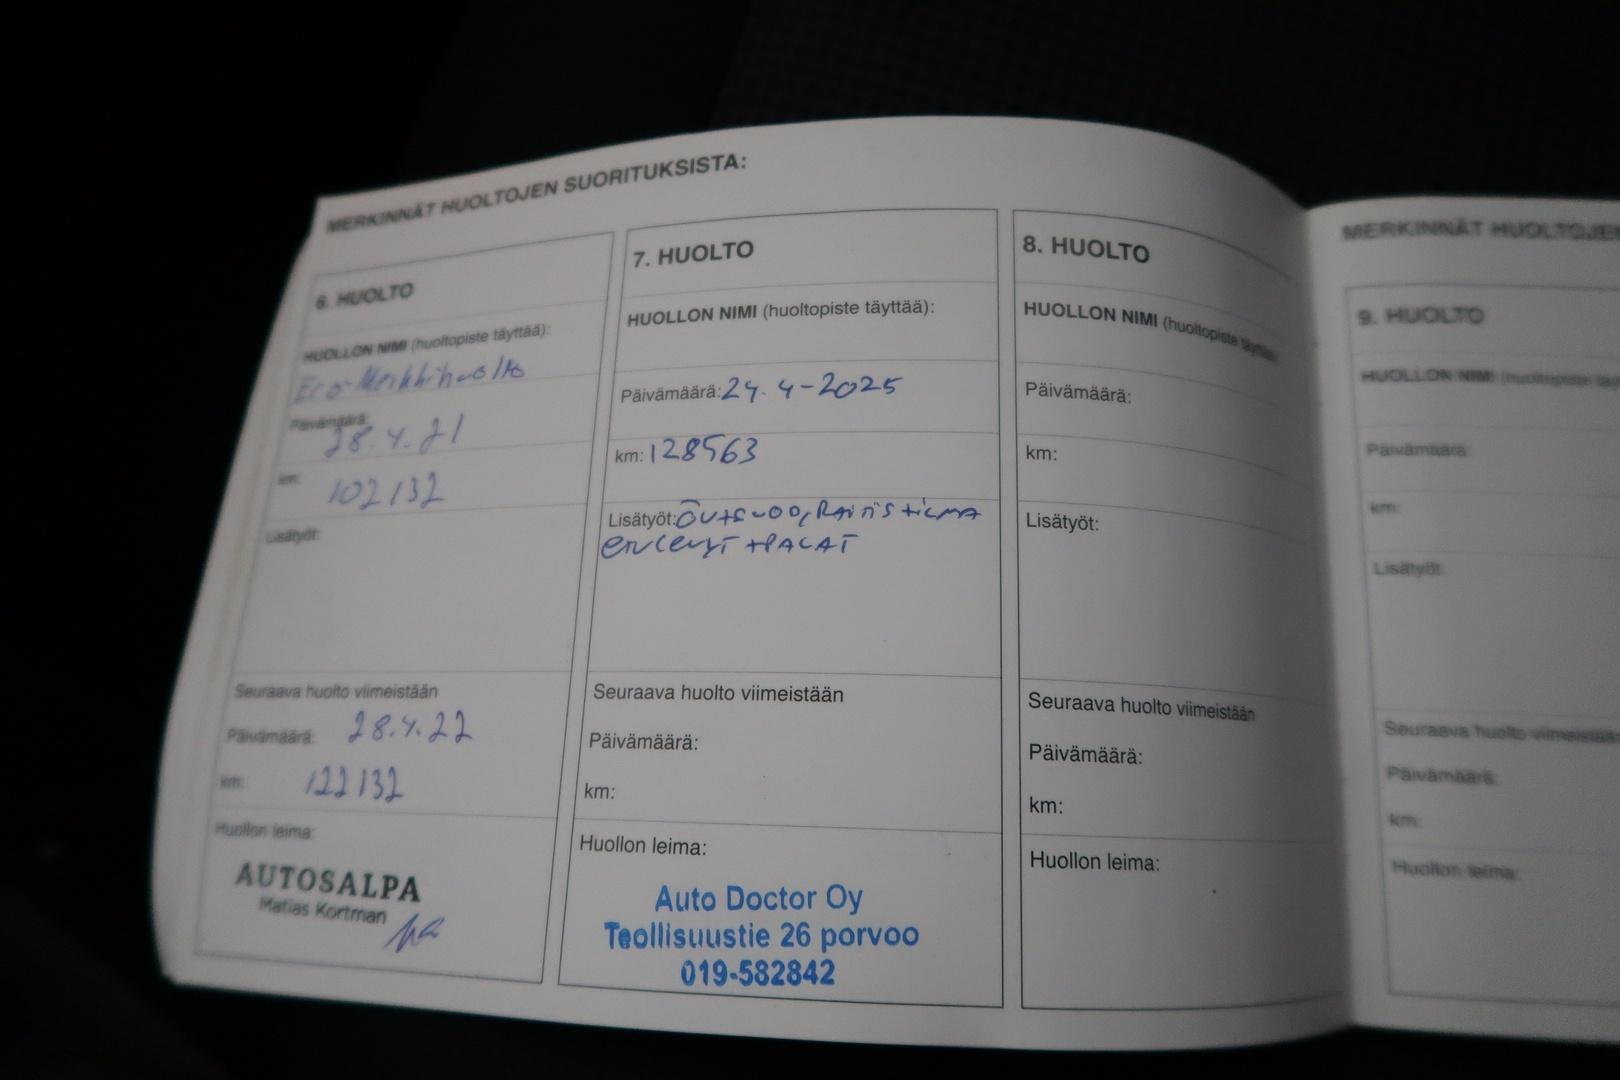 MERKINNÄT HUOLTOJEN SUORITUKSISTA:
6. HUOLTO
HUOLLON NIMI (huoltopiste täyttää):
Eco-Merkkihuolto
Päivämäärä:
28.4.21
km:
102132
Lisätyöt:
Seuraava huolto viimeistään
Päivämäärä: 28.4.22
km: 122132
Huollon leima:
AUTOSALPA
Matias Kortman
7. HUOLTO
HUOLLON NIMI (huoltopiste täyttää):
Päivämäärä: 24.4-2025
km: 128563
Lisätyöt:
+PALAT
Seuraava huolto viimeistään
Päivämäärä:
km:
Huollon leima:
Auto Doctor Oy
Teollisuustie 26 porvoo
019-582842
8. HUOLTO
HUOLLON NIMI (huoltopiste
Päivämäärä:
km:
Lisätyöt:
Seuraava huolto viimeistään
Päivämäärä:
km:
Huollon leima:
MERKINNÄT
9. HUOLTO
HUOLLON NIMI (huoltopiste
Päivämäärä:
km:
Lisätyöt:
Seuraava huolto viimeistään
Päivämäärä:
km:
Huollon leima: